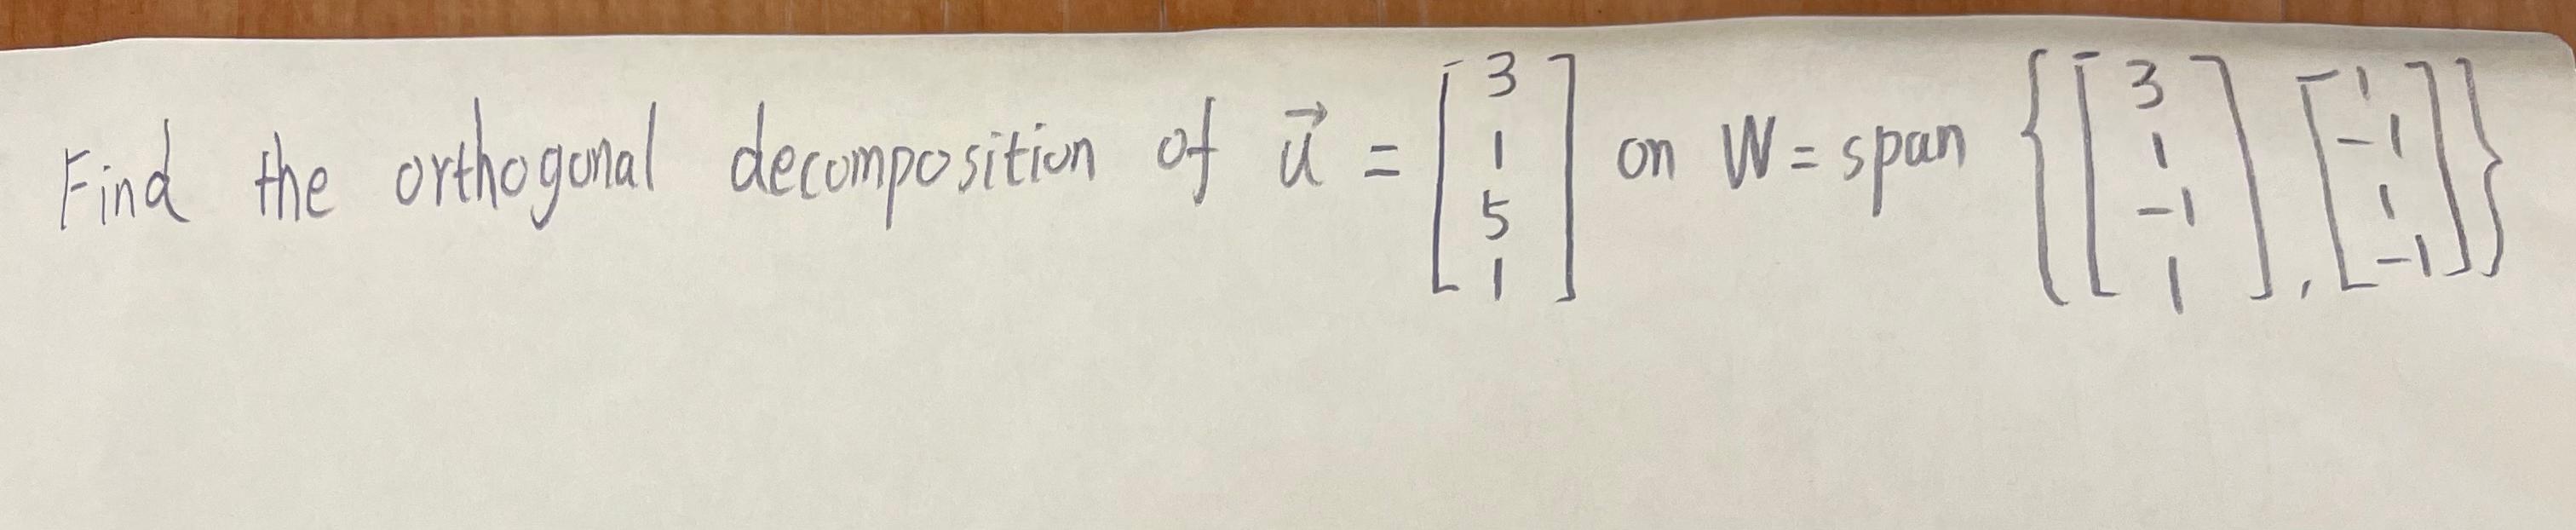 Find the orthogonal decomposition of $\vec{u} = \begin{bmatrix} 3 \\ 1 \\ 5 \\ 1 \end{bmatrix}$ on W = span $\left\{ \begin{bmatrix} 3 \\ 1 \\ -1 \\ 1 \end{bmatrix}, \begin{bmatrix} 1 \\ -1 \\ 1 \\ -1 \end{bmatrix} \right\}$